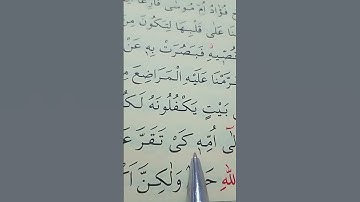 فُؤَادُ اُمِّ مُوسٰى فَارِغًا
نَا عَلٰى قَلْبِهَا لِتَكُونَ مِنَ
قُصّ۪يهِ فَبَصُرَتْ بِه۪ عَنْ
رَّمْنَا عَلَيْهِ الْمَرَاضِعَ مِ
بَيْتٍ يَكْفُلُونَهُ لَكُ
لٰٓى اُمِّه۪ كَىْ تَقَرَّ عَ
اللّٰهِ حَ وَلٰكِنَّ اَكْ